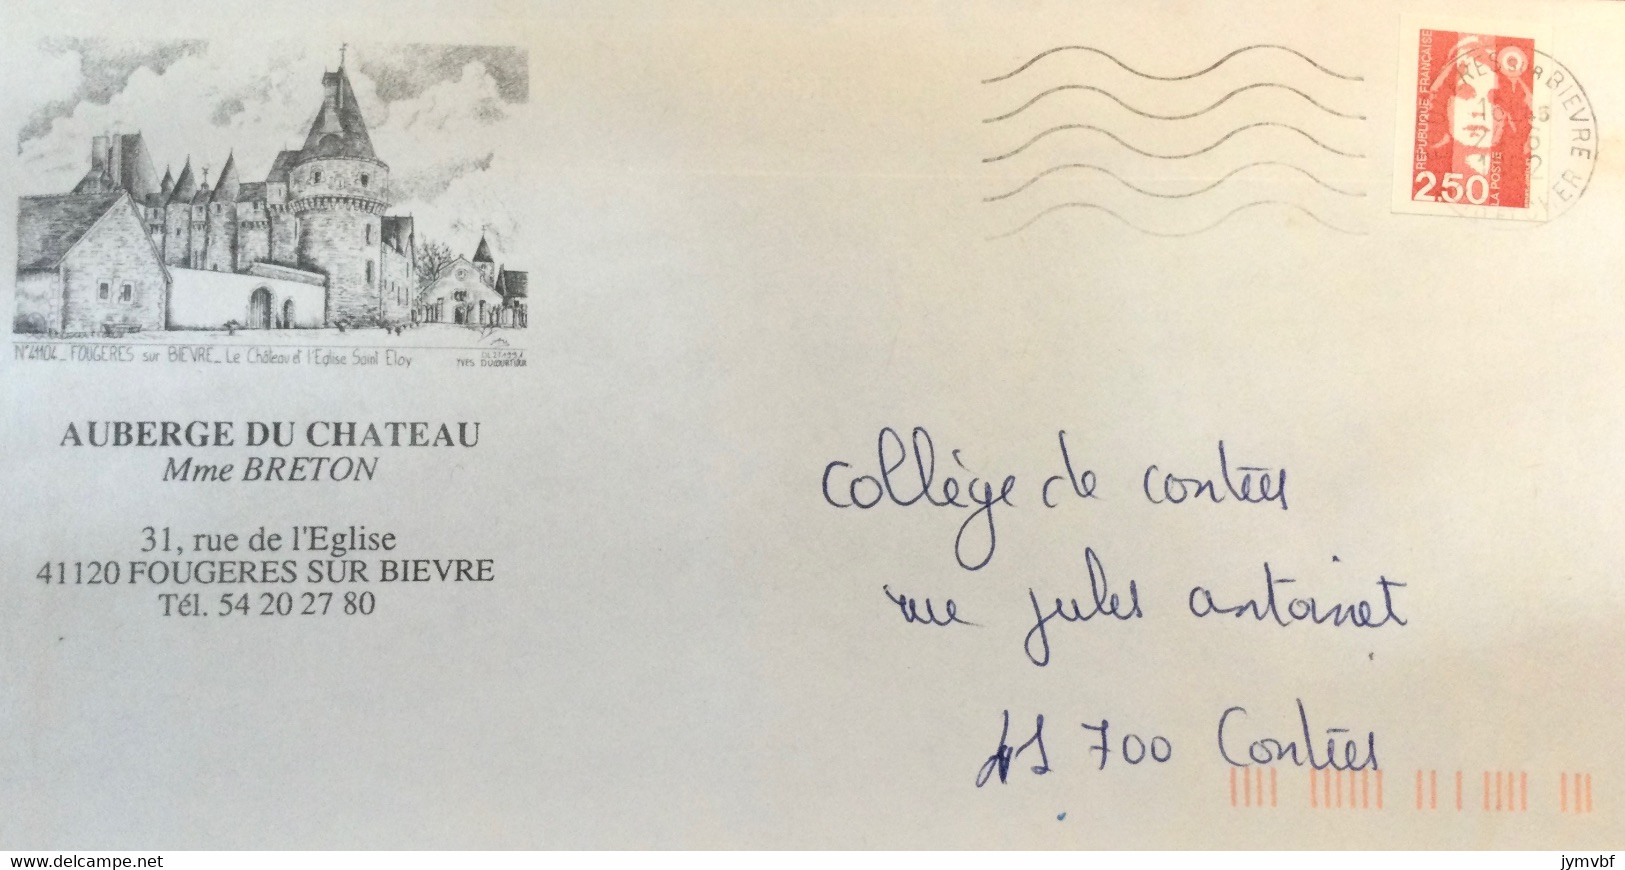 N°41104_ FOUGERES sur BIEVRE_ Le Château et l'Eglise Saint Eloy
YVES DUCOURTIOUX
AUBERGE DU CHATEAU
Mme BRETON
31, rue de l'Eglise
41120 FOUGERES SUR BIEVRE
Tél. 54 20 27 80
REPUBLIQUE FRANÇAISE
2,50
LA POSTE
RES SUR BIEVRE
CHER
Collège de contres
rue jules antoinet
41 700 Contres
delcampe.net
jymvbf